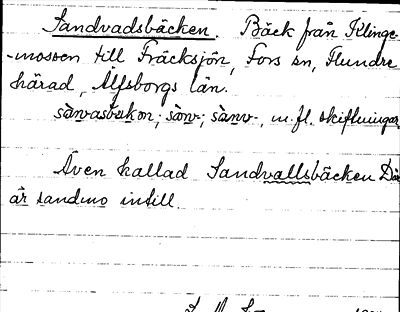 Sandvadsbäcken. Bäck från Klinge-
-mossen till Fräcksjön, Fors sn, Flundre
härad, Älfsborgs län.
sànvasbäkən; sànv-; sànv-, m. fl. skiftningar
Även kallad Sandvallsbäcken Där
är sandmo intill